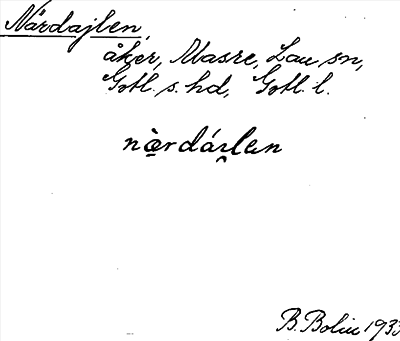 Närdajlen,
åker, Masre, Lau sn,
Gotl. s. hd, Gotl. l.
næ̀rdái̯len
B. Bolin 1933